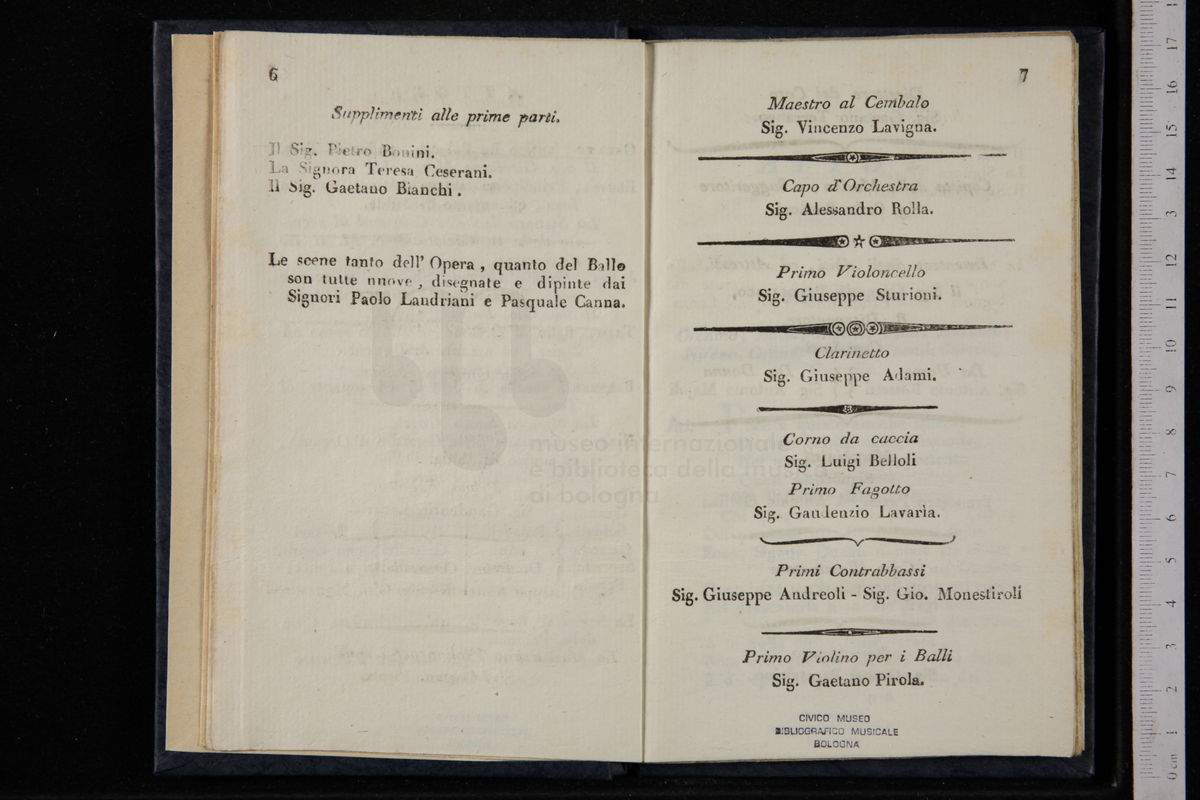 6
Supplimenti alle prime parti.
Il Sig. Pietro Bonini.
La Signora Teresa Ceserani.
Il Sig. Gaetano Bianchi.
Le scene tanto dell' Opera, quanto del Ballo
son tutte nuove, disegnate e dipinte dai
Signori Paolo Landriani e Pasquale Canna.
7
Maestro al Cembalo
Sig. Vincenzo Lavigna.
Capo d'Orchestra
Sig. Alessandro Rolla.
Primo Violoncello
Sig. Giuseppe Sturioni.
Clarinetto
Sig. Giuseppe Adami.
Corno da caccia
Sig. Luigi Belloli
Primo Fagotto
Sig. Gaudenzio Lavaria.
Primi Contrabbassi
Sig. Giuseppe Andreoli - Sig. Gio. Monestiroli
Primo Violino per i Balli
Sig. Gaetano Pirola.
CIVICO MUSEO
BIBLIOGRAFICO MUSICALE
BOLOGNA
museo internazionale
e biblioteca della musica
di bologna
0 cm 1 2 3 4 5 6 7 8 9 10 11 12 13 14 15 16 17